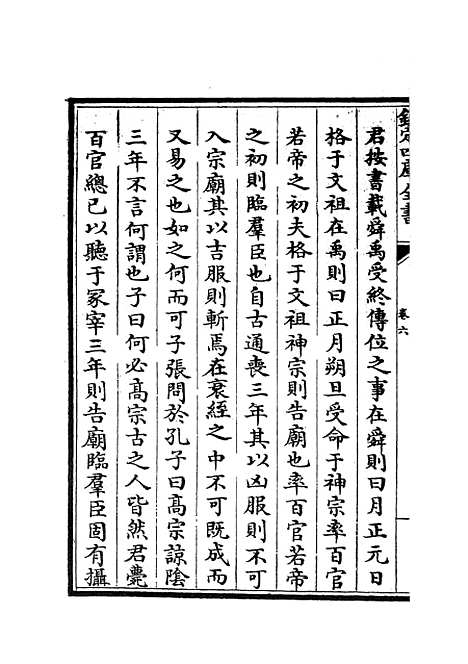 欽定四庫全書
卷六
君按書載舜禹受終傳位之事在舜則曰月正元日
格于文祖在禹則曰正月朔旦受命于神宗率百官
若帝之初夫格于文祖神宗則告廟也率百官若帝
之初則臨羣臣也自古通喪三年其以凶服則不可
入宗廟其以吉服則斬焉在衰絰之中不可既成而
又易之也如之何而可子張問於孔子曰髙宗諒隂
三年不言何謂也子曰何必髙宗古之人皆然君薨
百官緫已以聽于冢宰三年則告廟臨羣臣固有攝